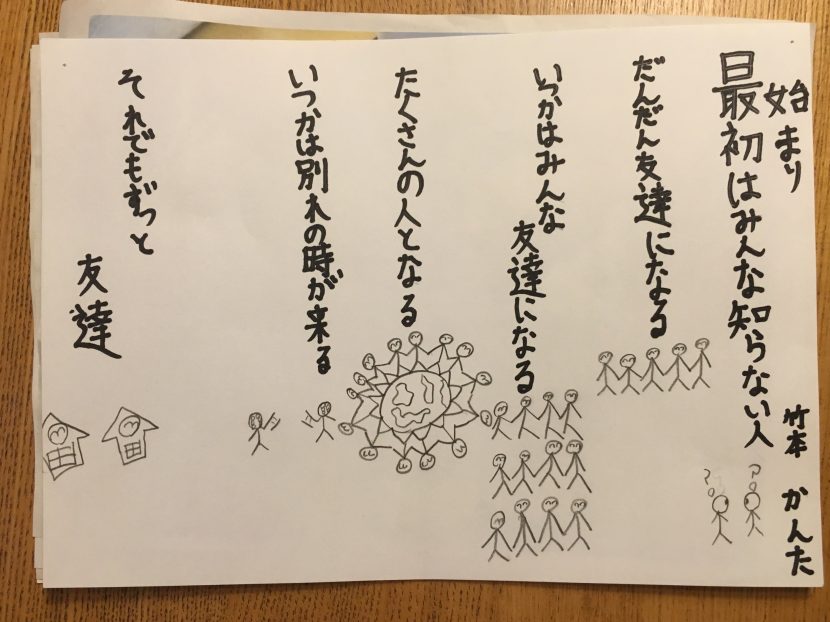 始まり
竹本 かんた
最初はみんな知らない人
だんだん友達になる
いつかはみんな
友達になる
たくさんの人となる
いつかは別れの時が来る
それでもずっと
友達
?
?